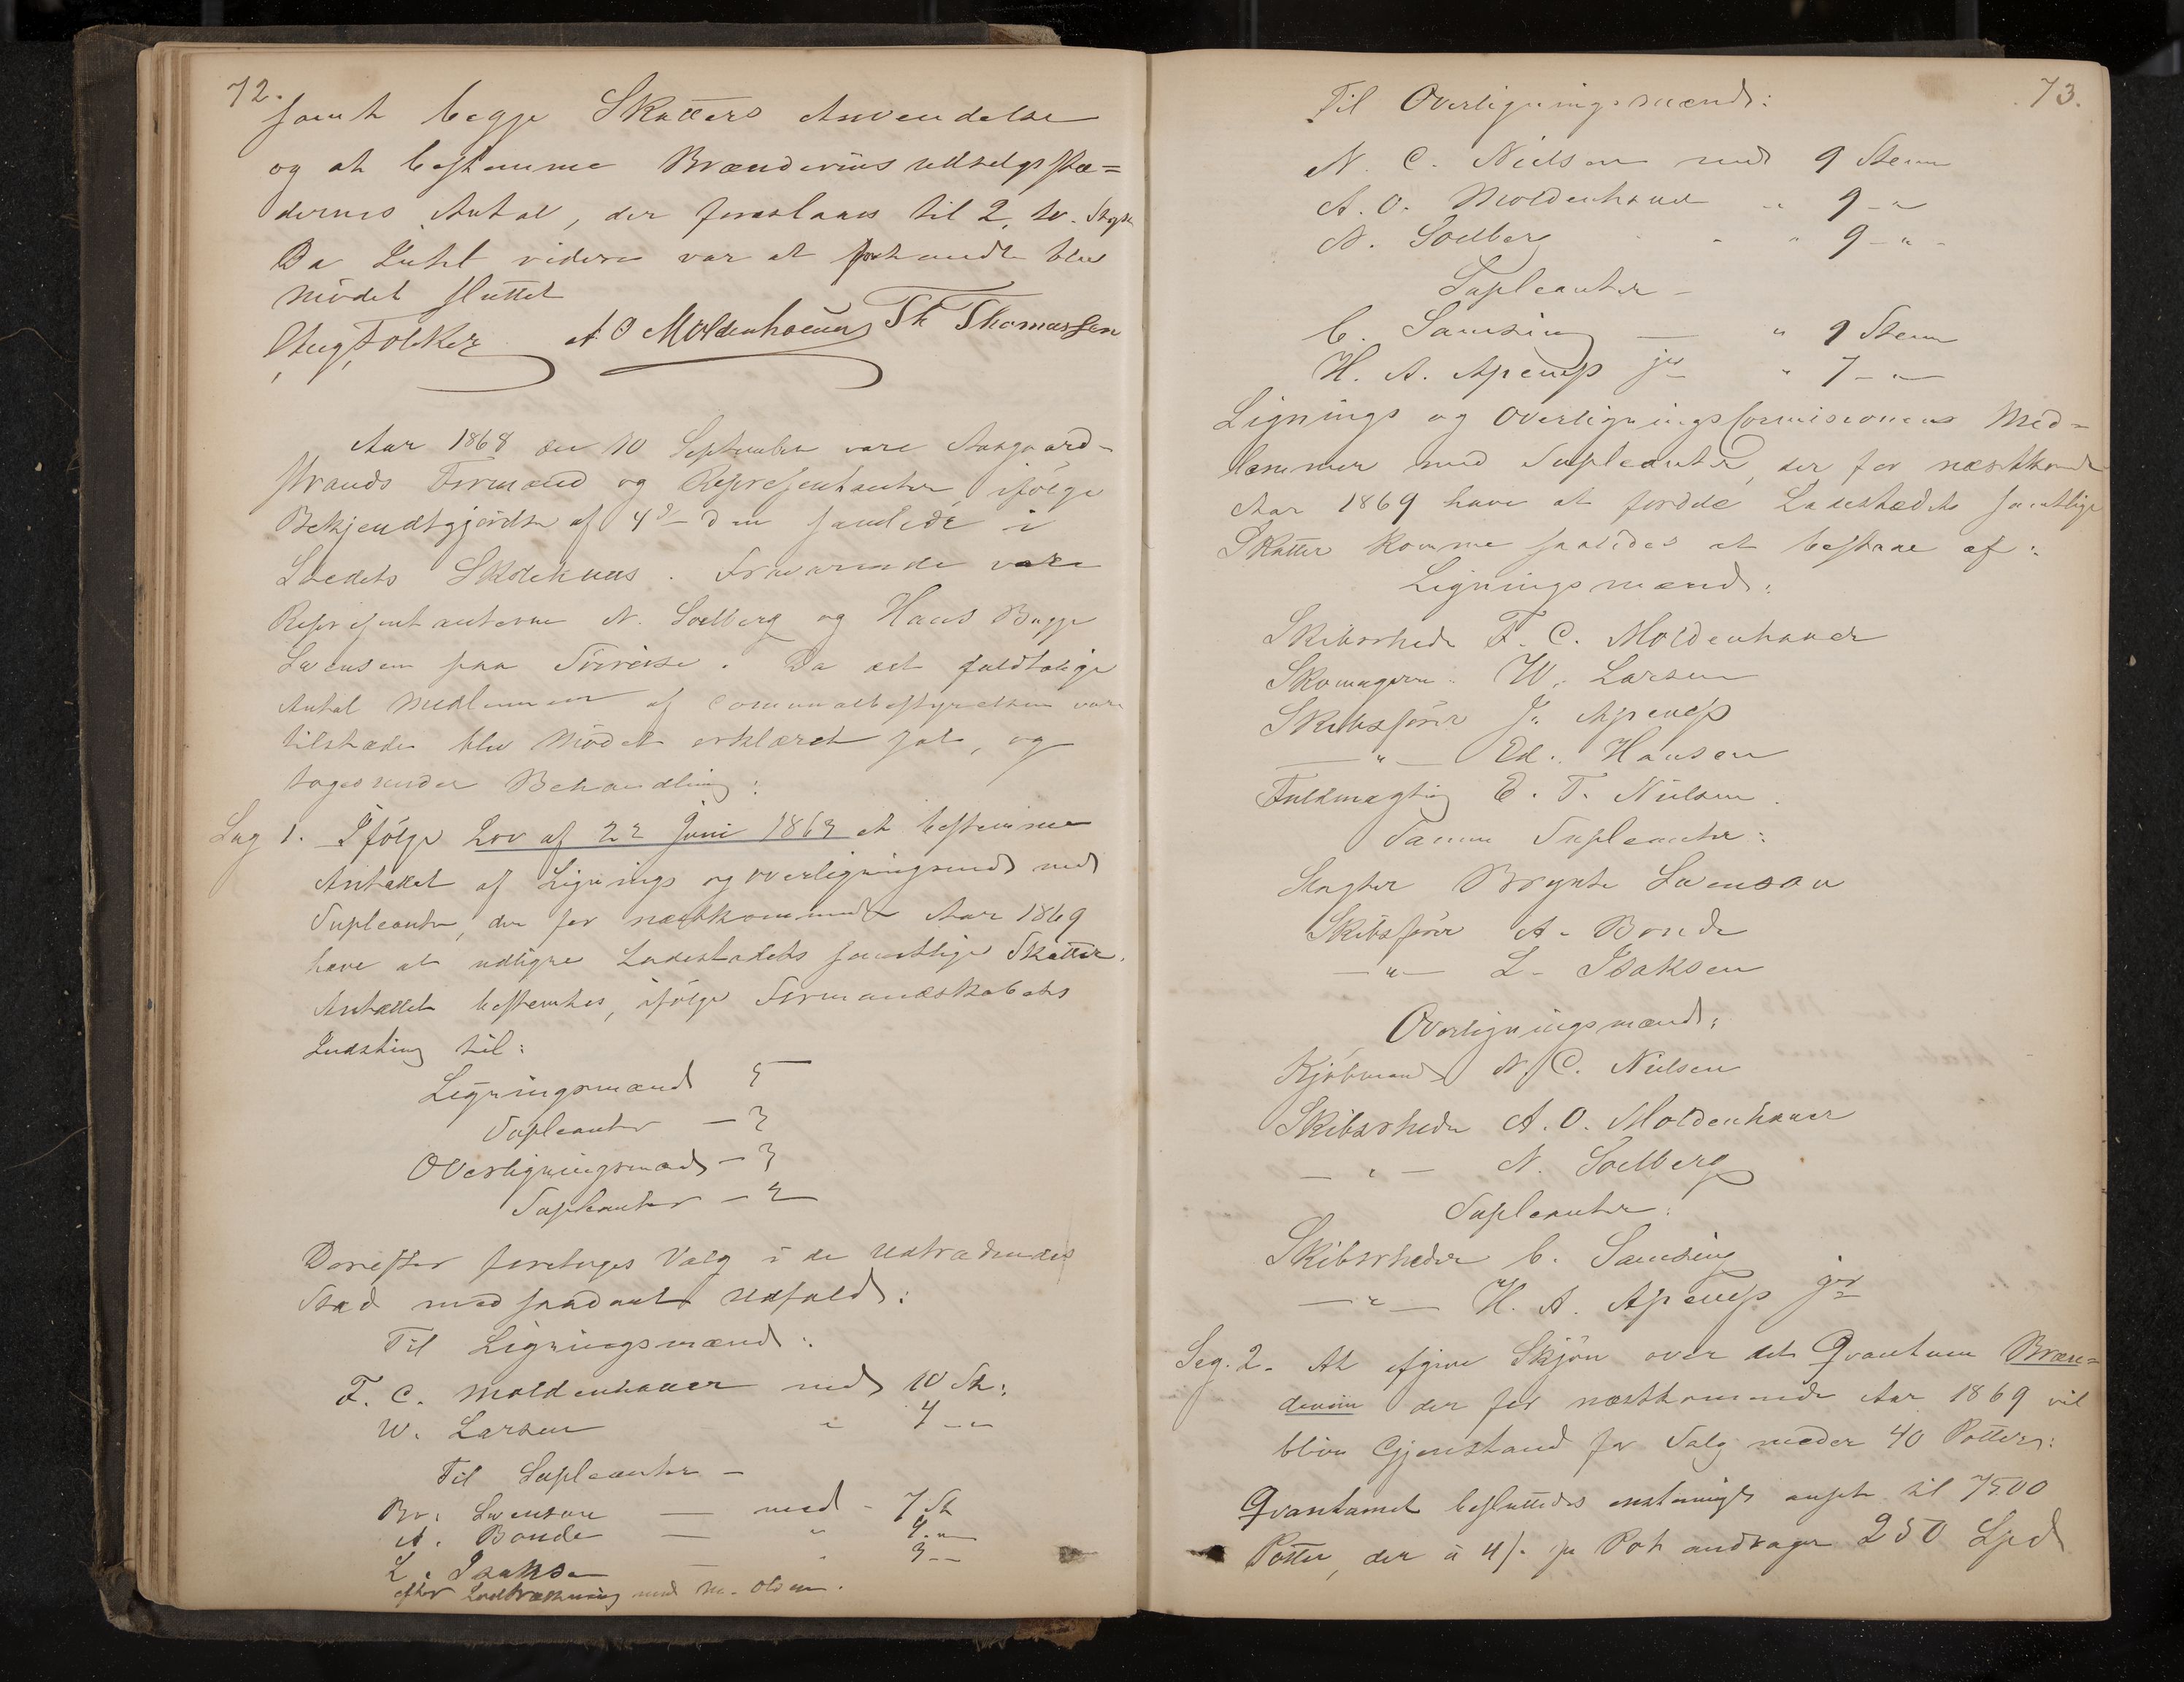 72.
samt begge Skatters Anvendelse
og at bestemme Brændeviinsudselgsstæ=
dernes Antal, der foreslaaes til 2, to. Stykk
Da Intet videre var at forhandle blev
Mödet sluttet
Aug Folcker A O Moldenhauer Th Thomassen
Aar 1868 den 10 September vare Aasgaard-
strands Formænd og Repræsentanter, ifölge
Bekjendtgjörelse af 4de dennes samlede i
Stedets Skolehuus. Fraværende vare
Repræsentanterne N. Soelberg og Hans Bugge
Svensen paa Söreise. Da det fuldtalige
Antal Medlemmer af Communalbestyrelsen vare
tilstæde blev Mödet erklæret sat, og
toges under Behandling:
Sag 1. Ifölge Lov af 22 Juni 1863 at bestemme
Antallet af Lignings og Overligningsmænd med
Supleanter, der for næstkommende Aar 1869
have at udligne Ladestedets samtlige Skatter.
Antallet bestemtes, ifölge Formandskabets
Indstilling til:
Ligningsmænd 5
Supleanter — 3
Overligningsmænd — 3
Supleanter — 2
Derefter foretoges Valg i de Udtrædendes
Sted med saadant Udfald:
Til Ligningsmænd:
F. C. Moldenhauer med 10 St:
W. Larsen " 4 —"—
Til Supleanter —
Br: Svensen — med - 7 St
A. Bonde — " 4 —"—
L. Isaksen — " 3 ——
efter Lodtrækning med M. Olsen.
73.
Til Overligningsmænd:
N. C. Nielsen med 9 Stem
A. O. Moldenhauer " 9 —"—
N. Soelberg " 9 —"—
Supleanter —
C. Samsing — " 9 Stem
H. A. Apenæs jr " 7 —"—
Lignings og Overligningscommisionens Med=
lemmer med Supleanter, der for næstkomde
Aar 1869 have at fordele Ladestædets samtlige
Skatter komme saaledes at bestaae af:
Ligningsmænd:
Skibsrheder F. C. Moldenhauer
Skomagerm. W. Larsen
Skibsförer J. Apenæs
—"— Ed. Hansen
Fuldmægtig E. T. Nielsen.
Samme Supleanter:
Slagter Brynte Svenson
Skibsförer A. Bonde
—"— L. Isaksen
Overligningsmænd:
Kjöbmand N. C. Nielsen
Skibsrheder A. O. Moldenhauer
—"— N. Soelberg
Supleanter:
Skibsrheder C. Samsing
—"— H. A. Apenæs jr
Sag. 2. At afgive Skjön over det Qvantum Bræn=
deviin der for næstkommende Aar 1869 vil
blive Gjenstand for Salg under 40 Potter:
Qvantumet besluttedes enstemigt ansat til 7500
Potter, der à 4/- pr Pot andrager 250 Spd